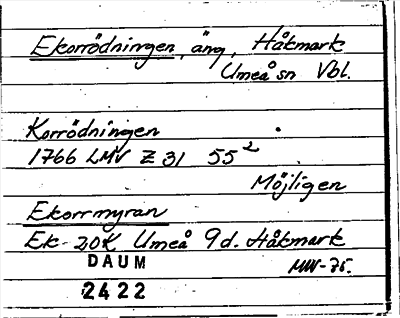 Ekorrödningen, äng, Håkmark
Umeå sn Vbl.
Korrödningen
1766 LMV Z 31 55²
Möjligen
Ekorrmyran
Ek. 20K Umeå 9d. Håkmark
DAUM MW-75.
2422